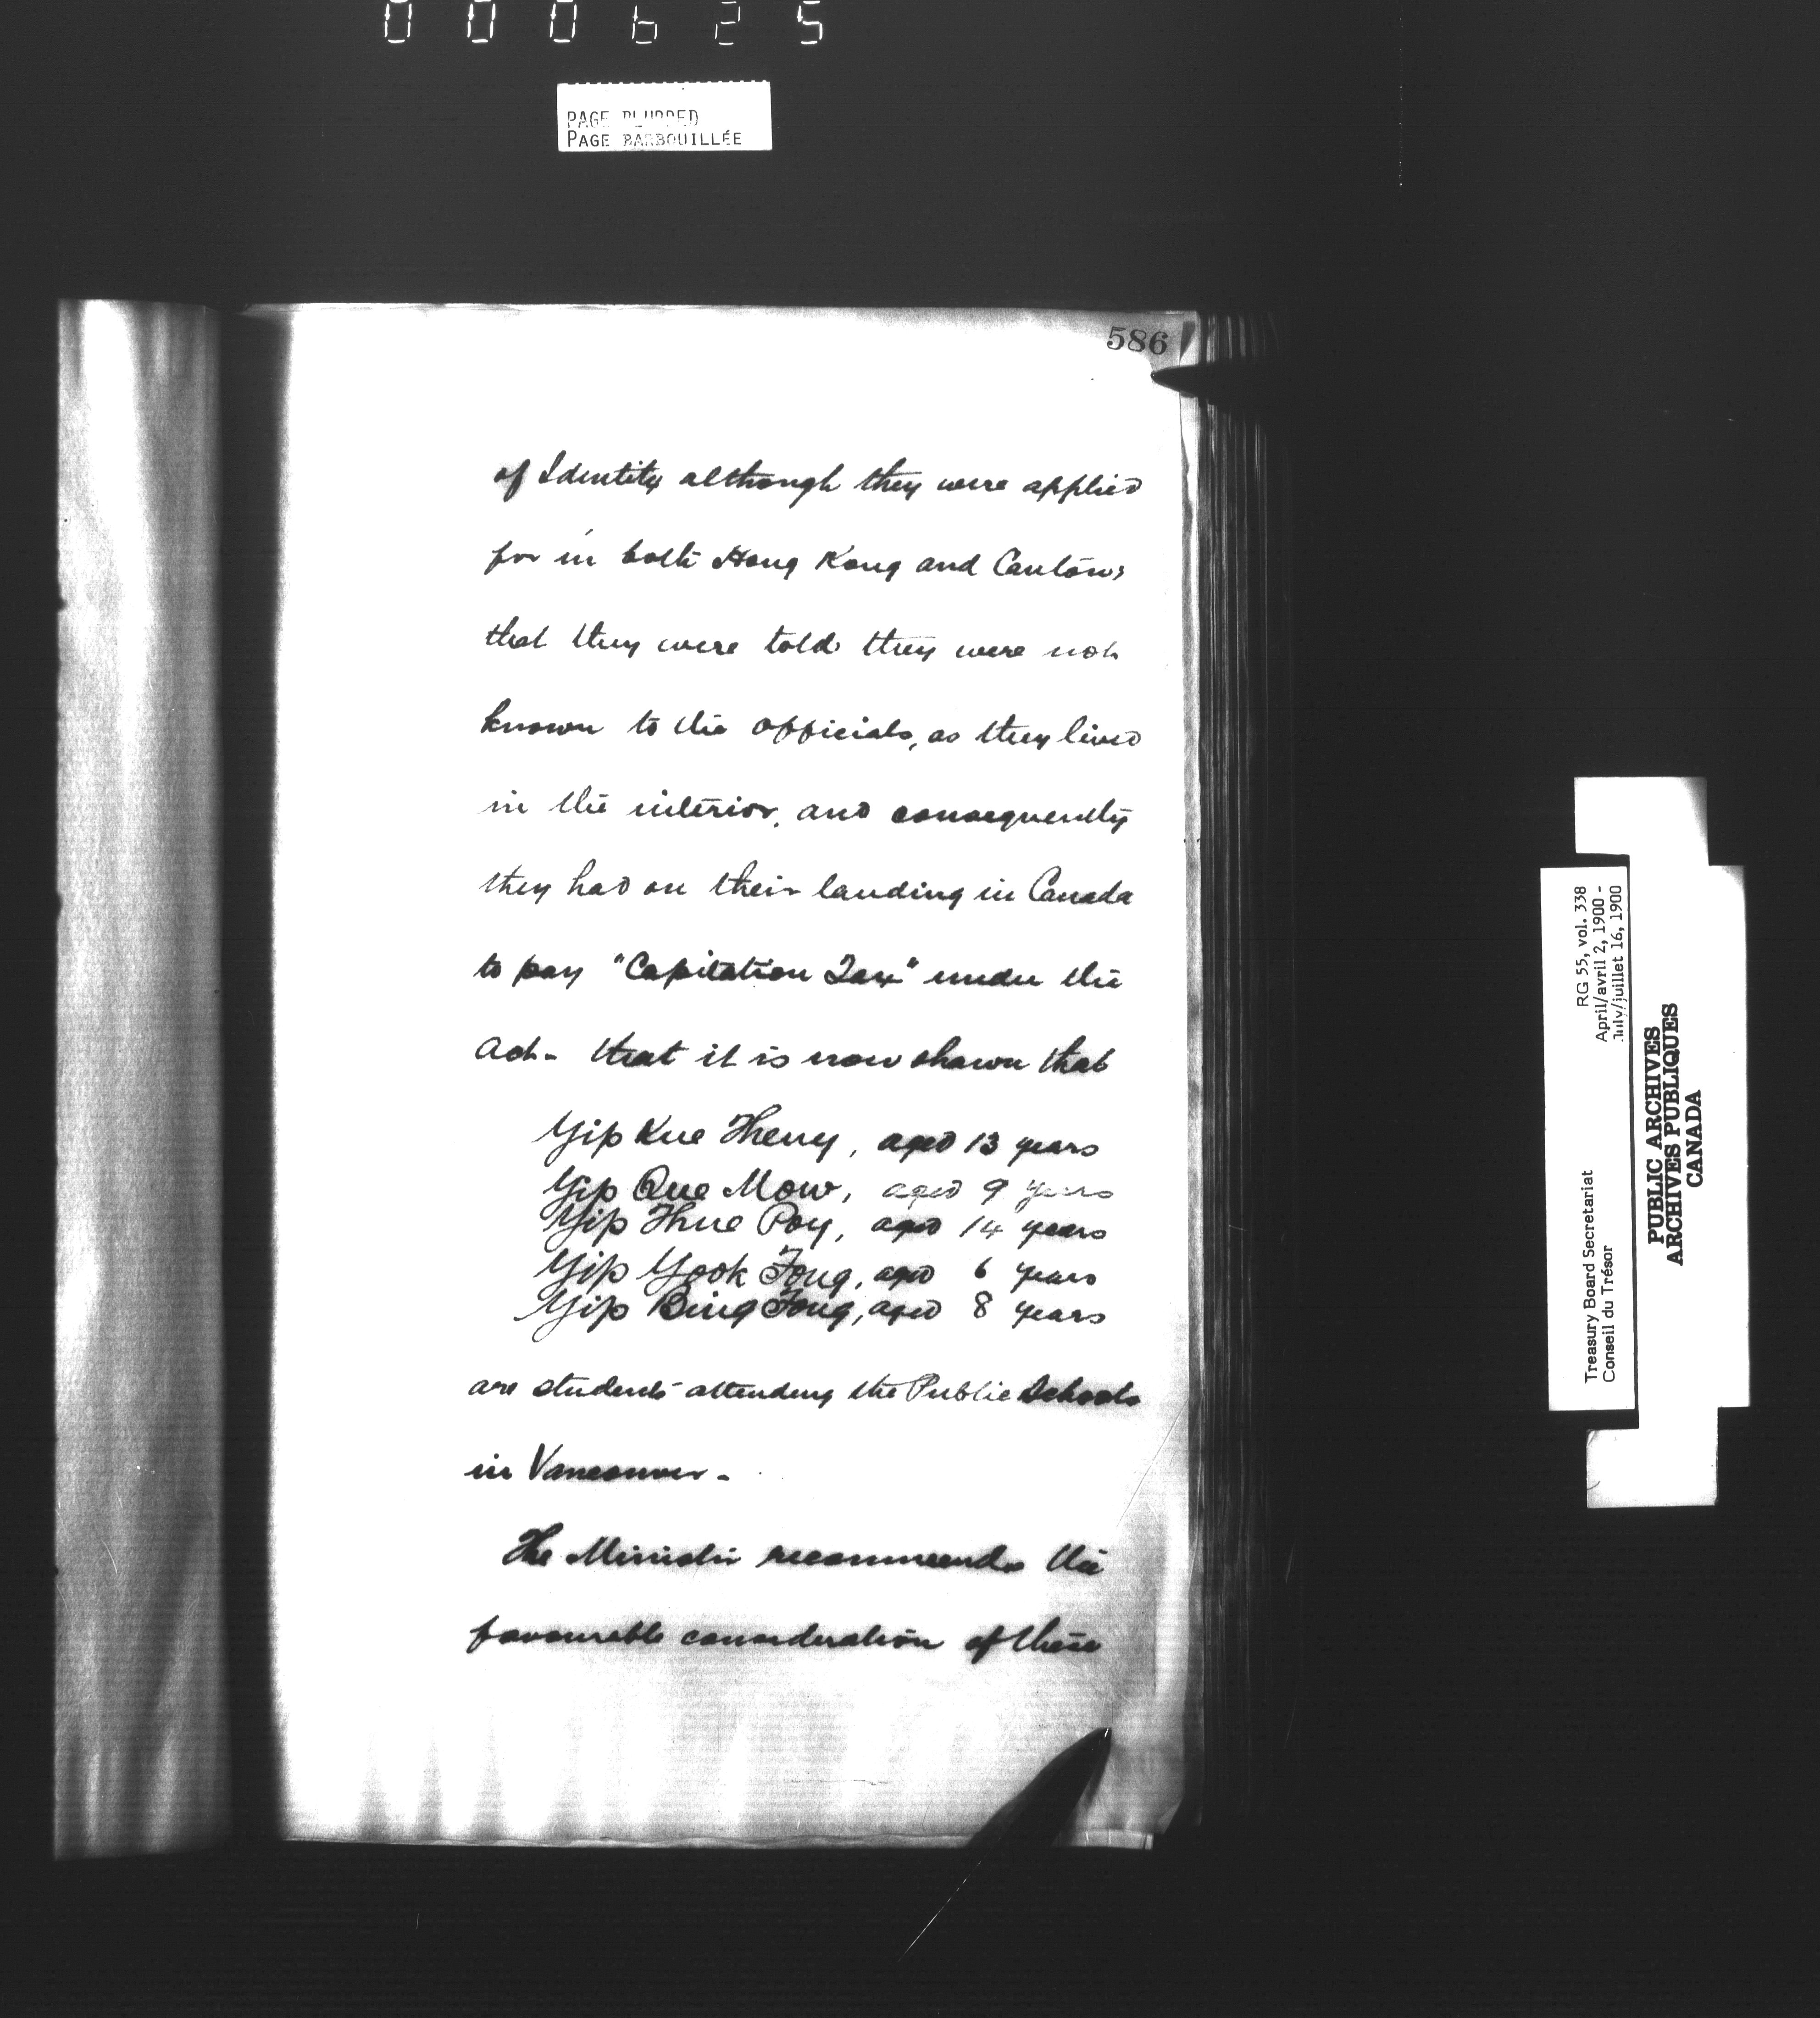 000625
PAGE BLURRED
PAGE BARBOUILLÉE
586
of Identity although they were applied
for in both Hong Kong and Canton;
that they were told they were not
known to the officials, as they lived
in the interior, and consequently
they had on their landing in Canada
to pay "Capitation Tax" under the
Act - that it is now shown that
Yip Kue Theny, aged 13 years
Yip Que Mow, aged 9 years
Yip Thue Poy, aged 14 years
Yip Yook Fong, aged 6 years
Yip Bing Fong, aged 8 years
are students attending the Public Schools
in Vancouver -
The Minister recommends the
favourable consideration of these
RG 55, vol. 338
April/avril 2, 1900 -
July/juillet 16, 1900
Treasury Board Secretariat
Conseil du Trésor
PUBLIC ARCHIVES
ARCHIVES PUBLIQUES
CANADA